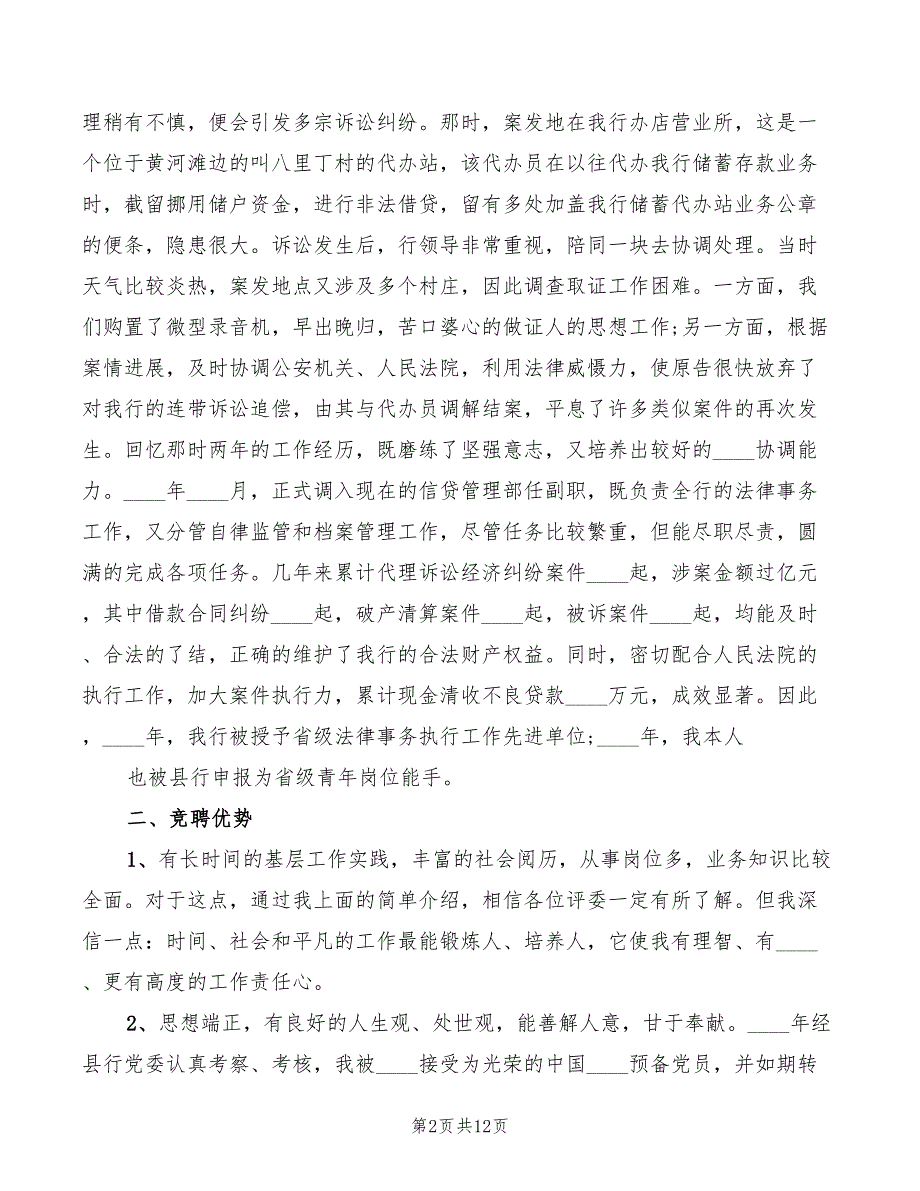 理稍有不慎，便会引发多宗诉讼纠纷。那时，案发地在我行办店营业所，这是一
个位于黄河滩边的叫八里丁村的代办站，该代办员在以往代办我行储蓄存款业务
时，截留挪用储户资金，进行非法借贷，留有多处加盖我行储蓄代办站业务公章
的便条，隐患很大。诉讼发生后，行领导非常重视，陪同一块去协调处理。当时
天气比较炎热，案发地点又涉及多个村庄，因此调查取证工作困难。一方面，我
们购置了微型录音机，早出晚归，苦口婆心的做证人的思想工作;另一方面，根据
案情进展，及时协调公安机关、人民法院，利用法律威慑力，使原告很快放弃了
对我行的连带诉讼追偿，由其与代办员调解结案，平息了许多类似案件的再次发
生。回忆那时两年的工作经历，既磨练了坚强意志，又培养出较好的____协调能
力。____年____月，正式调入现在的信贷管理部任副职，既负责全行的法律事务
工作，又分管自律监管和档案管理工作，尽管任务比较繁重，但能尽职尽责，圆
满的完成各项任务。几年来累计代理诉讼经济纠纷案件____起，涉案金额过亿元
，其中借款合同纠纷____起，破产清算案件____起，被诉案件____起，均能及时
、合法的了结，正确的维护了我行的合法财产权益。同时，密切配合人民法院的
执行工作，加大案件执行力，累计现金清收不良贷款____万元，成效显著。因此
，____年，我行被授予省级法律事务执行工作先进单位;____年，我本人
也被县行申报为省级青年岗位能手。
二、竞聘优势
1、有长时间的基层工作实践，丰富的社会阅历，从事岗位多，业务知识比较
全面。对于这点，通过我上面的简单介绍，相信各位评委一定有所了解。但我深
信一点：时间、社会和平凡的工作最能锻炼人、培养人，它使我有理智、有____
、更有高度的工作责任心。
2、思想端正，有良好的人生观、处世观，能善解人意，甘于奉献。____年经
县行党委认真考察、考核，我被____接受为光荣的中国____预备党员，并如期转
第2页共12页